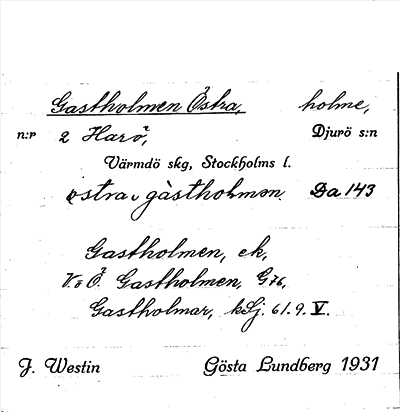 Gastholmen Östra, holme,
n:r 2 Harö, Djurö s:n
Värmdö skg, Stockholms l.
östra gàsthohmən. Da 143
Gastholmen, ek,
V. o Ö. Gastholmen, G76,
Gastholmar, kSj. 61.9. V.
J. Westin Gösta Lundberg 1931